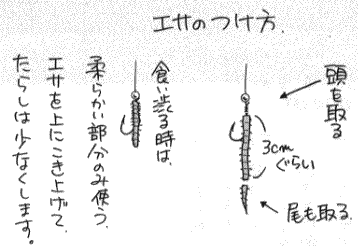 エサのつけ方.
頭を取る
3cm
ぐらい
尾も取る
食い渋る時は、
柔らかい部分のみ使う。
エサを上にこき上げて、
たらしは少なくします。